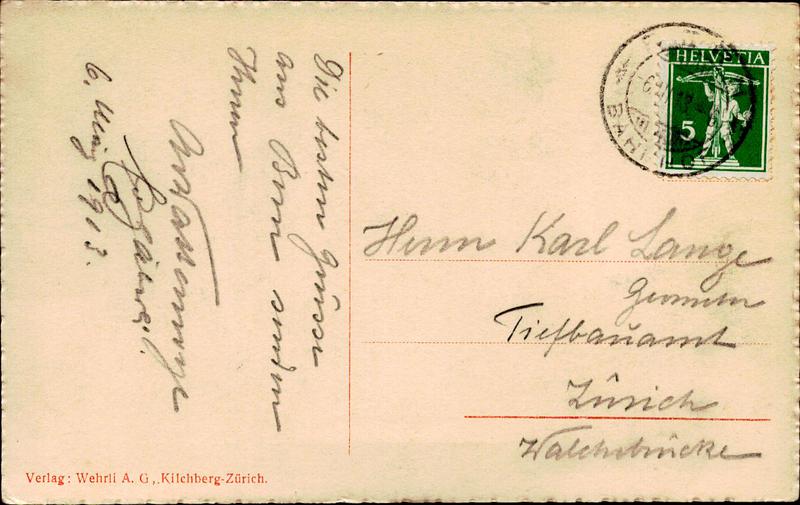 Die besten Grüsse
aus Bern senden
Ihnen
6. 1913.
HELVETIA
5
Herrn Karl Lange
Geometer
Tiefbauamt
Zürich
Walchebrücke
Verlag: Wehrli A. G., Kilchberg-Zürich.